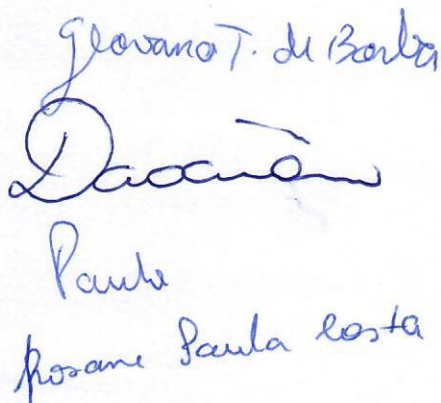 Geovana T. de Borba
Paula
Rosane Paula Costa